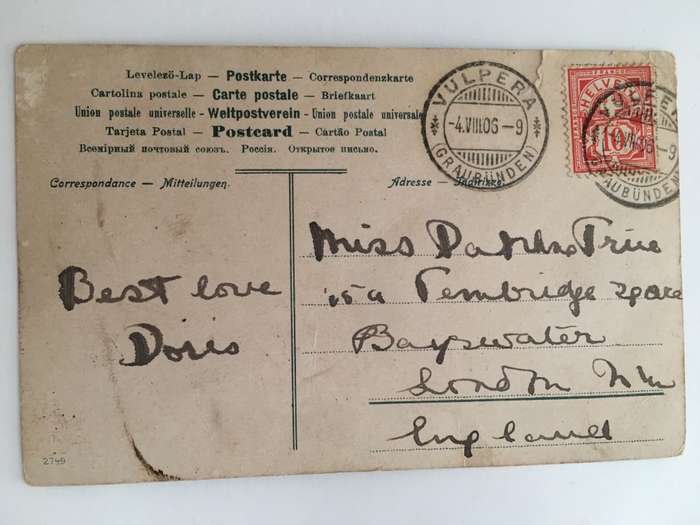 Levelező-Lap — Postkarte — Correspondenzkarte
Cartolina postale — Carte postale — Briefkaart
Union postale universelle — Weltpostverein — Union postale universale
Tarjeta Postal — Postcard — Cartão Postal
Всемірный почтовый союзъ. Россія. Открытое письмо.
VULPERA
-4.VIII.06-9
(GRAUBÜNDEN)
FRANCO
HELVETIA
10
VULPERA
VIII.06-9
(GRAUBÜNDEN)
Correspondance — Mitteilungen.
Adresse — Indirizzo
Best love
Doris
Miss
15a Pembridge
Bayswater
London
England
2749